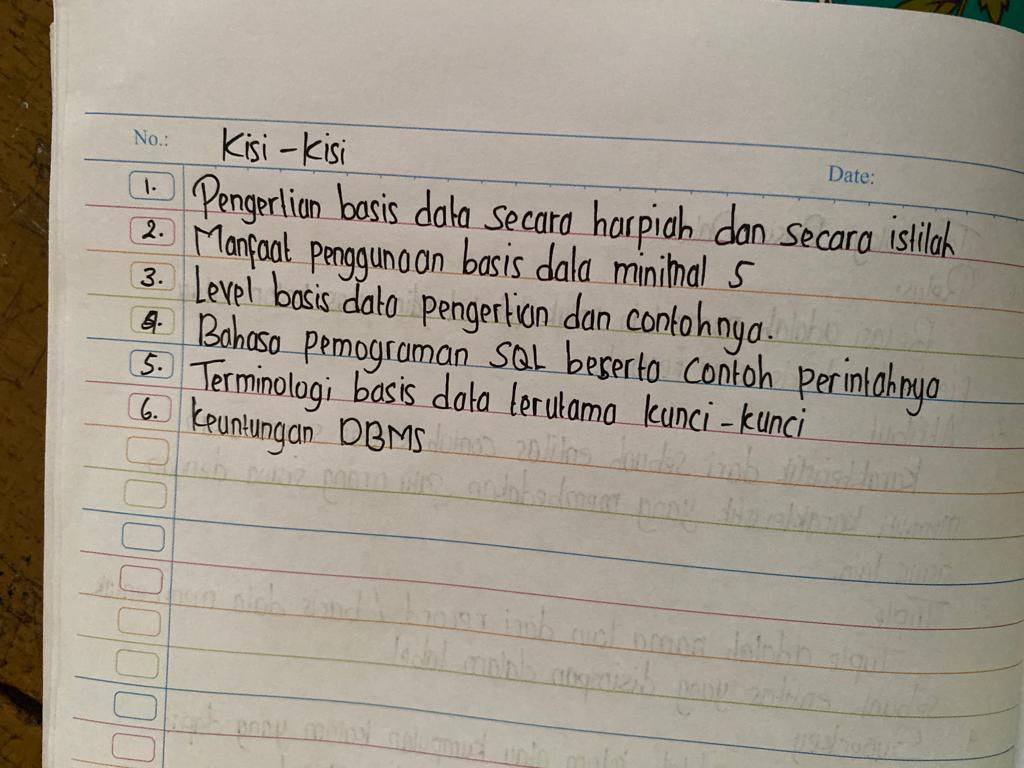 No.: Kisi - Kisi Date:
1. Pengertian basis data secara harpiah dan secara istilah
2. Manfaat penggunaan basis data minimal 5
3. Level basis data pengertian dan contohnya.
4. Bahasa pemograman SQL beserta contoh perintahnya
5. Terminologi basis data terutama kunci - kunci
6. Keuntungan DBMS